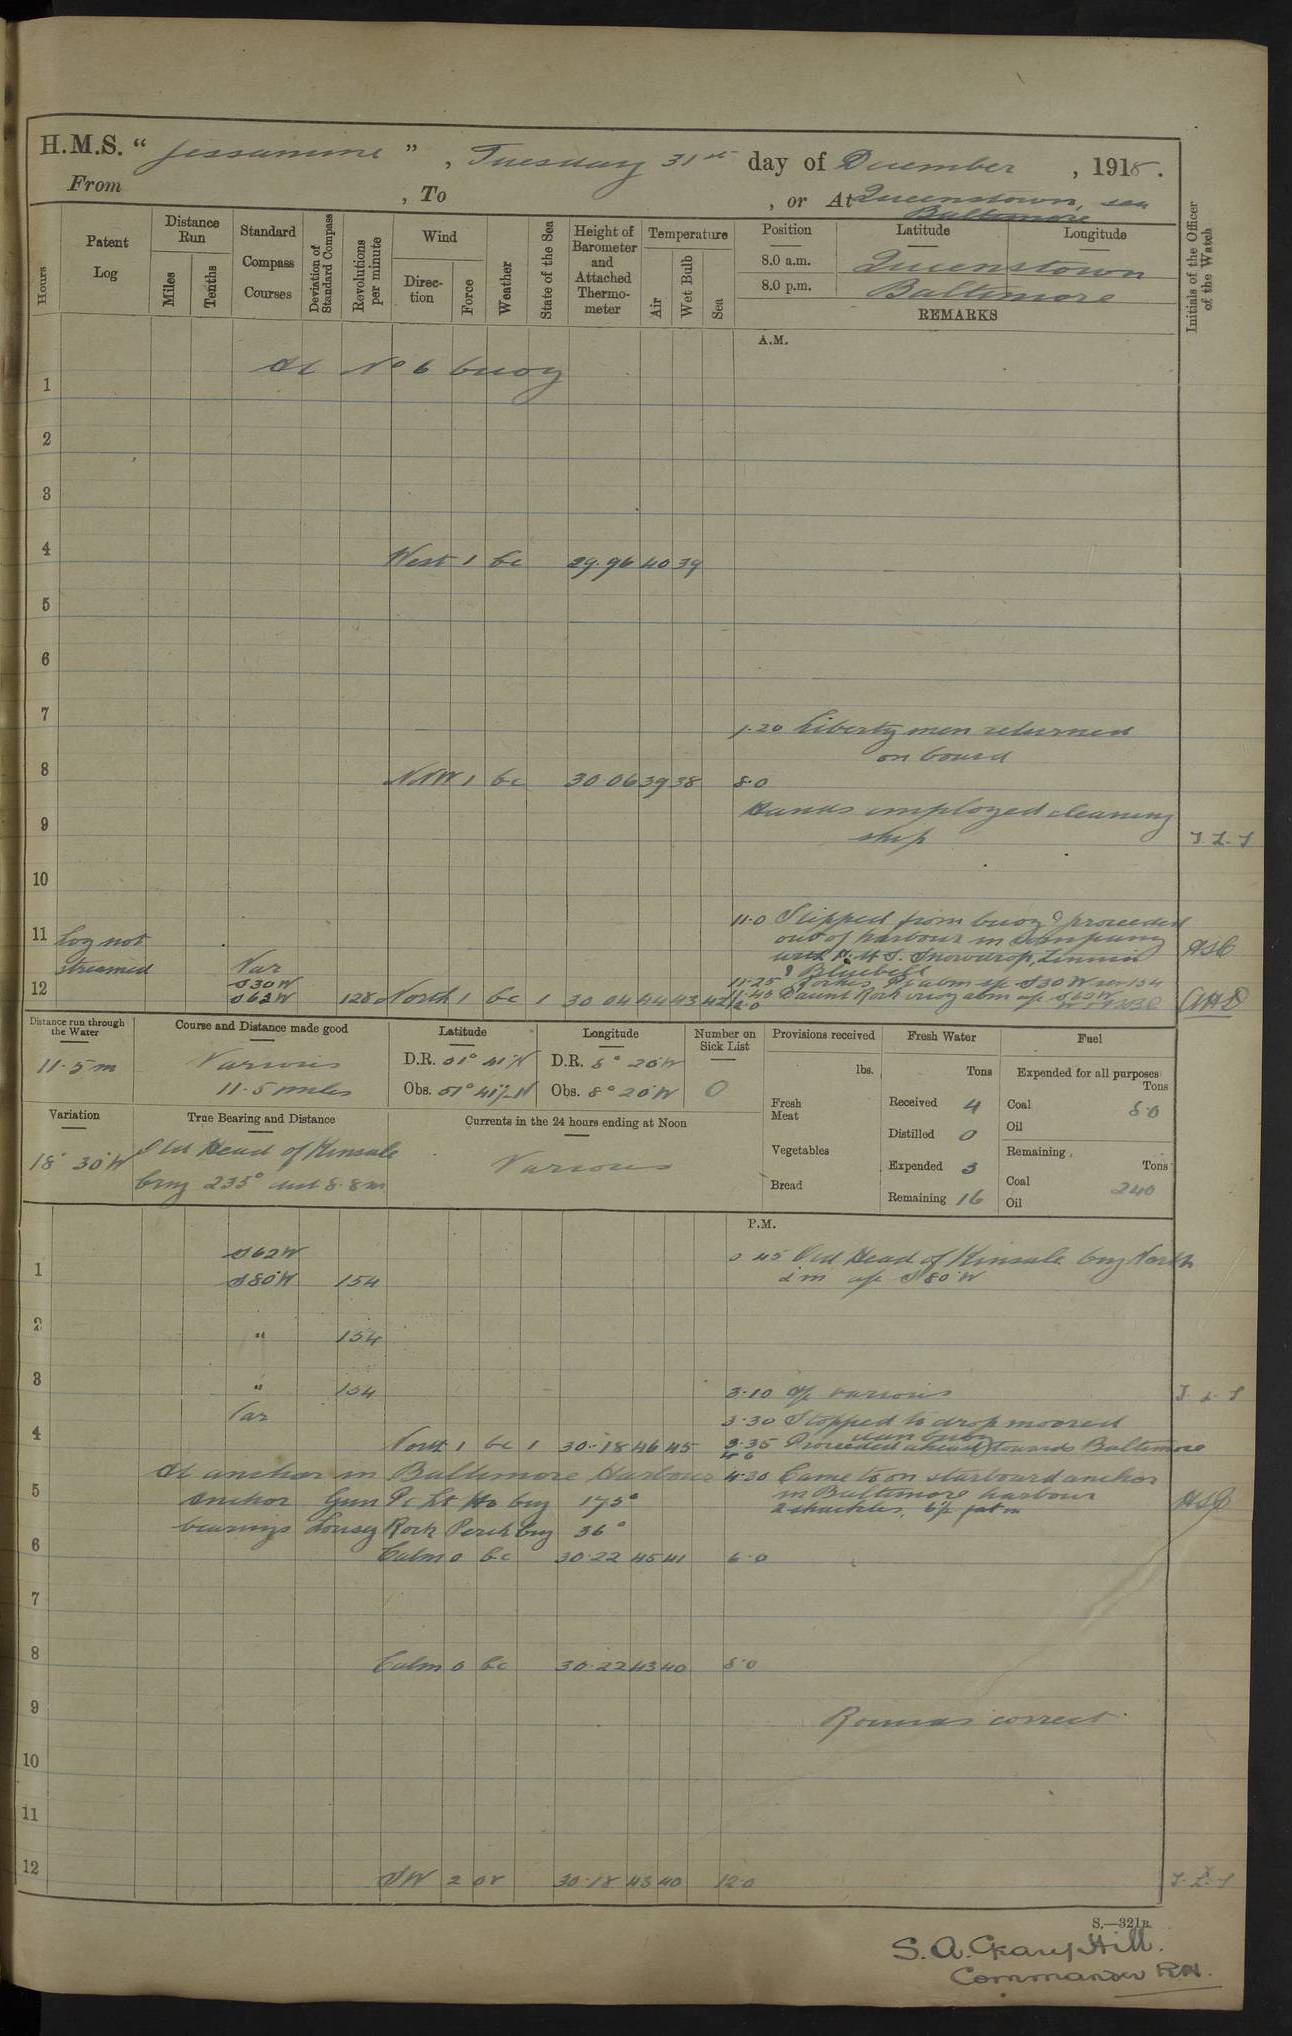 H.M.S. "Jessamine", Tuesday 31st day of December, 1918.
From , To , or At Queenstown, sea
Baltimore
Hours
Patent Log
Distance Run
Miles
Tenths
Standard Compass Courses
Deviation of Standard Compass
Revolutions per minute
Wind
Direction
Force
Weather
State of the Sea
Height of Barometer and Attached Thermometer
Temperature
Air
Wet Bulb
Sea
Position Latitude Longitude
8.0 a.m. Queenstown
8.0 p.m. Baltimore
REMARKS
Initials of the Officer of the Watch
A.M.
At No 6 buoy
1
2
3
4 West 1 bc 29.96 40 39
5
6
7
7.20 Liberty men returned
on board
8 NNW 1 bc 30.06 39 38 8.0
Hands employed cleaning
9 ship
10
11.0 Slipped from buoy & proceeded
11 Log not out of harbour in company
streamed Var with H.M.S. Snowdrop,
& Bluebell
S30W 11.25 abm a/c S30W
12 S62W 128 North 1 bc 1 30.04 44 43 42 11.40 Daunt Rock buoy abm a/c S62W
12.0
Distance run through the Water
11.5 m
Course and Distance made good
Various
11.5 miles
Latitude
D.R. 51° 41'N
Obs. 51° 41½'N
Longitude
D.R. 8° 20'W
Obs. 8° 20'W
Number on Sick List
0
Provisions received
lbs.
Fresh Meat
Vegetables
Bread
Fresh Water
Tons
Received 4
Distilled 0
Expended 3
Remaining 16
Fuel
Expended for all purposes
Tons
Coal 8.0
Oil
Remaining
Tons
Coal 240
Oil
Variation
18° 30'W
True Bearing and Distance
Old Head of Kinsale
brng 235° dist 8.8m
Currents in the 24 hours ending at Noon
Various
P.M.
S62W 0.45 Old Head of Kinsale brng North
1 S80W 154 2m a/c S80W
2 " 154
3 " 154 3.10 a/c various
Var 3.30 Stopped to drop moored
dan buoy
4 North 1 bc 1 30.18 46 45 3.35 Proceeded ahead towards Baltimore
At anchor in Baltimore Harbour 4.30 Came to on starboard anchor
5 Anchor Gun Pt Lt Ho brng 175° in Baltimore harbour
2 shackles, 6½ fatm
bearings Lousey Rock Perch brng 36°
6 Calm 0 bc 30.22 45 41 6.0
7
8 Calm 0 bc 30.22 43 40 8.0
9 Rounds correct
10
11
12 SW 2 or 30.18 43 40 12.0
S.—321B.
S.A. Geary Hill.
Commander RN.